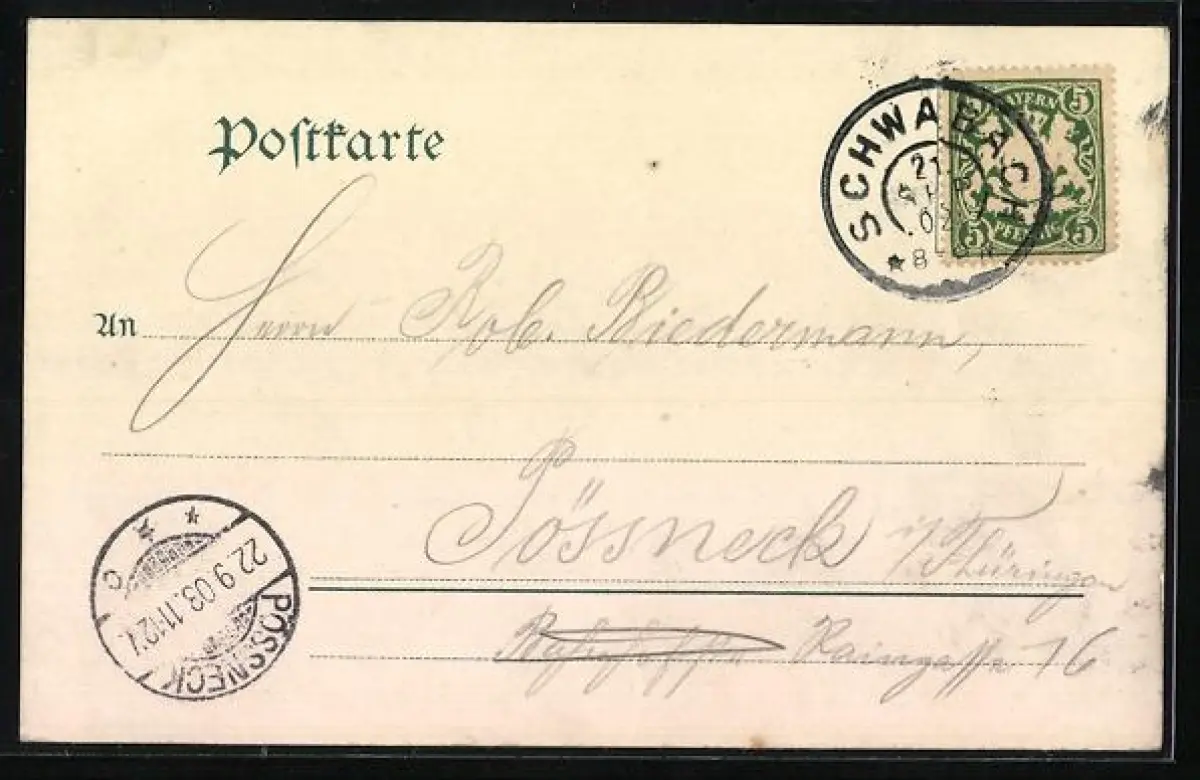 Postkarte
SCHWABACH
21 SEP 03
8
BAYERN
5
5 PFENNIG 5
An Herrn Rob. Biedermann,
Pössneck i/Thüringen
Raingasse 16
22.9.03.11-12V.
PÖSSNECK